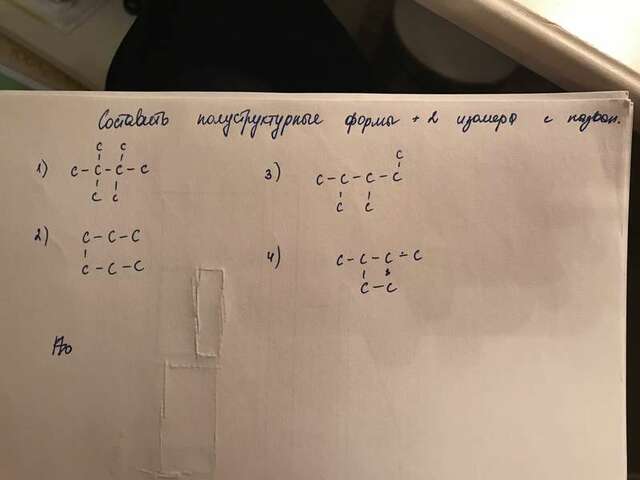 Составить полуструктурные формы + 2 изомера с назван.
1)
C C
C-C-C-C
C C
3)
C
C-C-C-C
C C
2)
C-C-C
C-C-C
4)
C-C-C-C
C-C